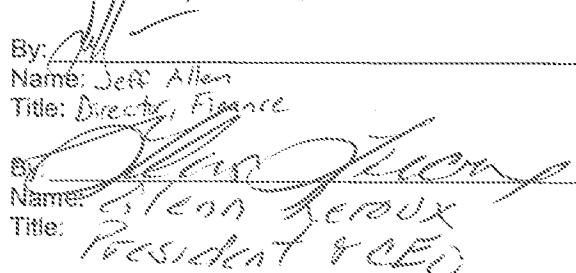 By:
Name: Jeff Allen
Title: Director, Finance
By
Name: Glenn Leroux
Title: President & CEO